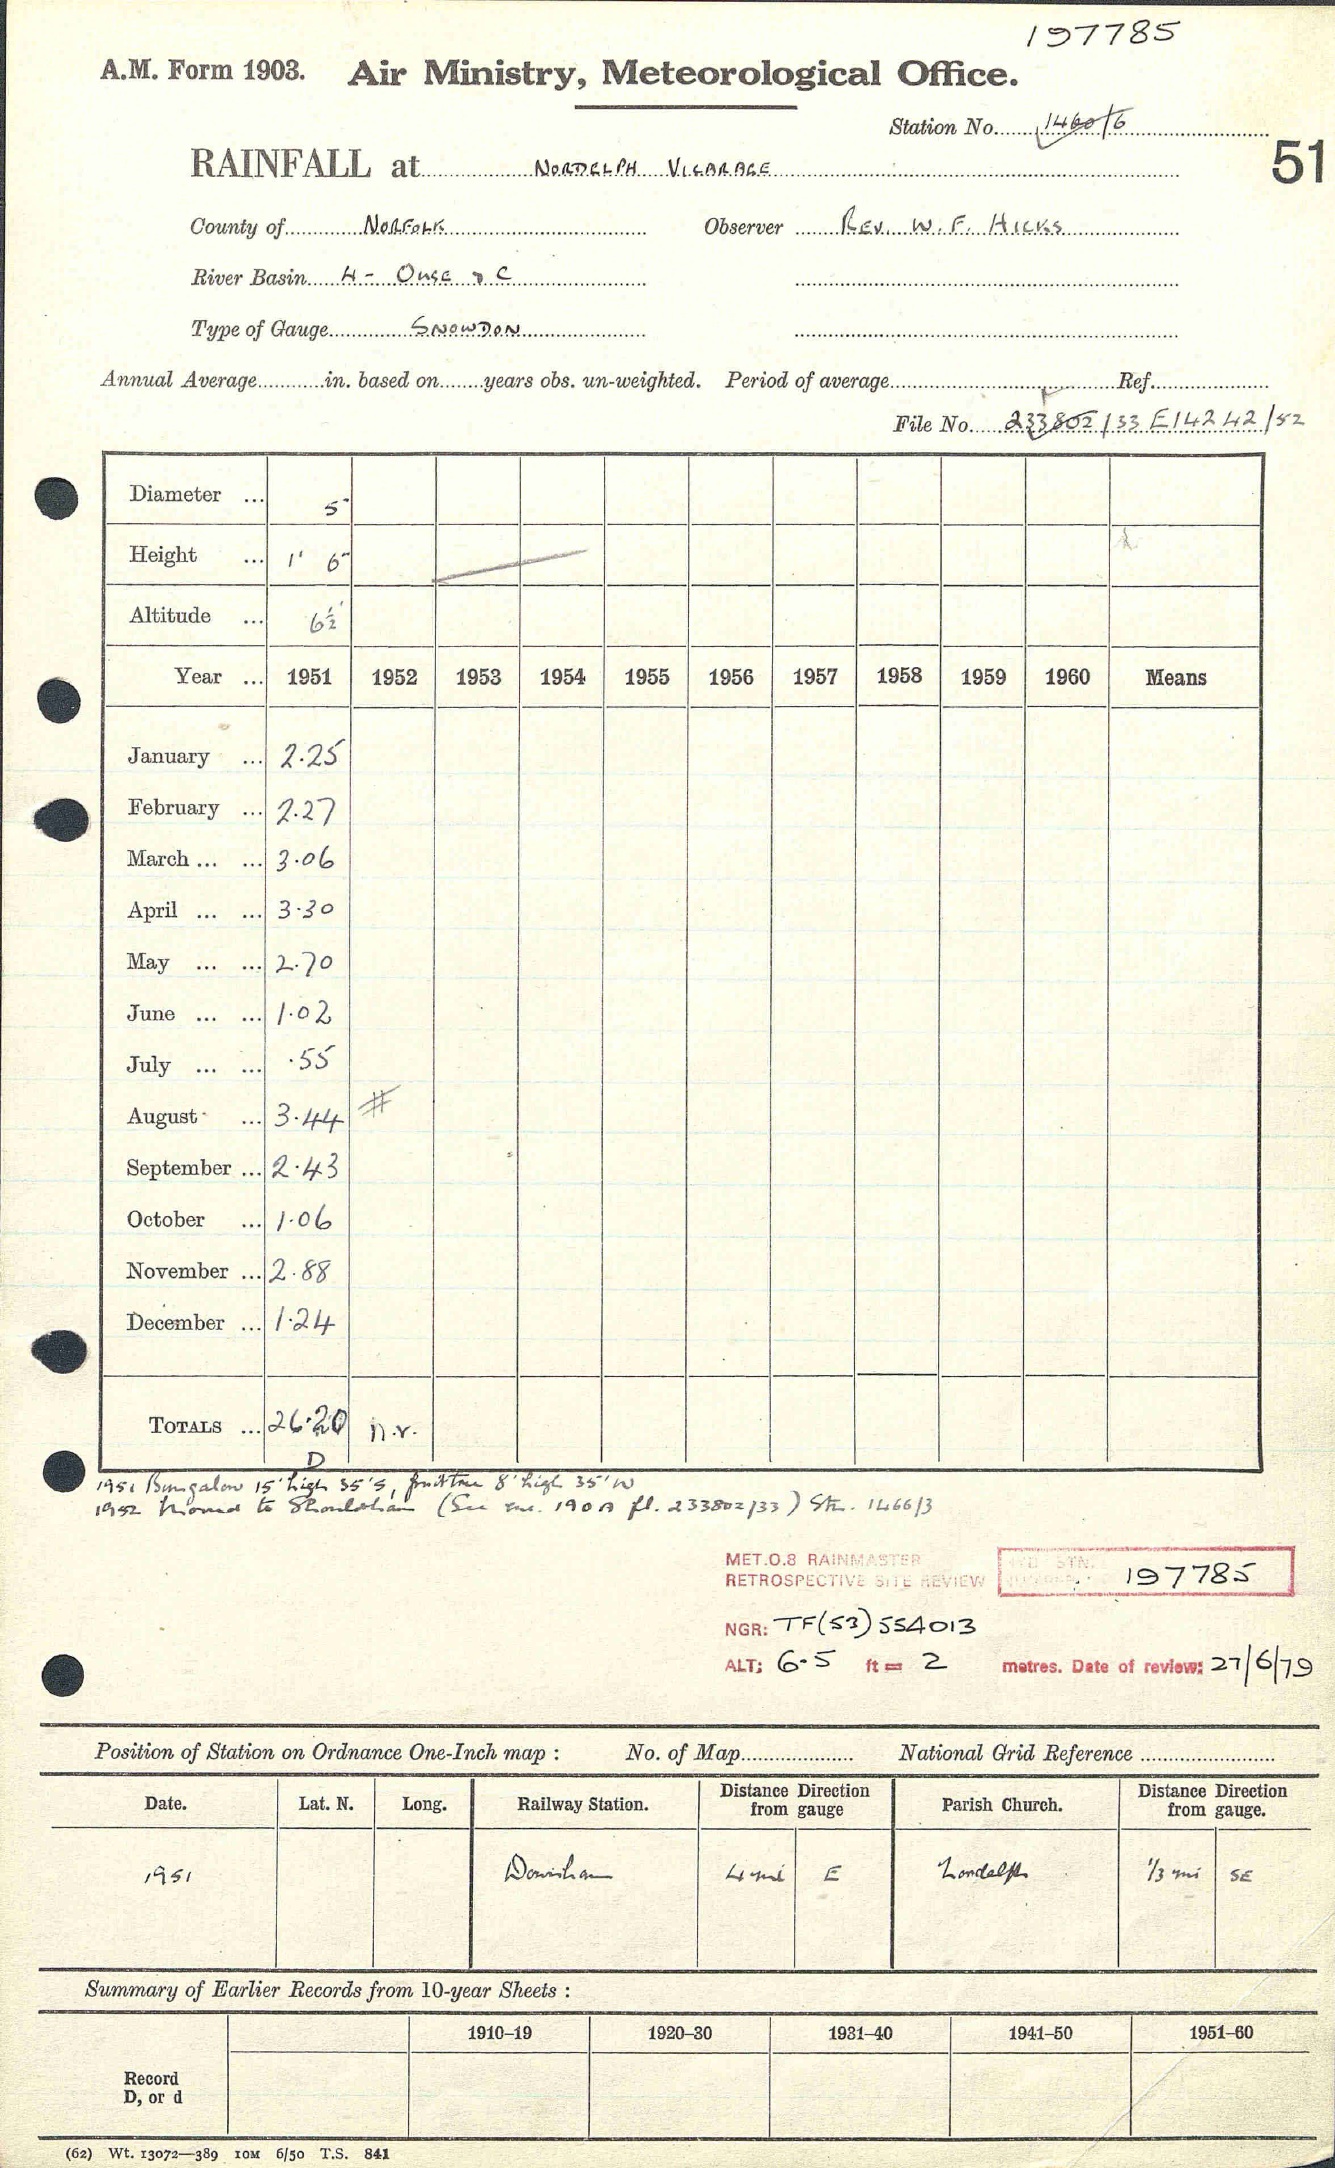 197785
A.M. Form 1903. Air Ministry, Meteorological Office.
Station No. 1460/6
51
RAINFALL at NORDELPH VICARAGE
County of NORFOLK Observer REV. W. F. HICKS
River Basin 4 - OUSE & C
Type of Gauge SNOWDON
Annual Average in. based on years obs. un-weighted. Period of average Ref.
File No. 233802/33 E14242/52
Diameter ... 5"
Height ... 1' 6"
Altitude ... 6½'
Year ... 1951 1952 1953 1954 1955 1956 1957 1958 1959 1960 Means
January ... 2.25
February ... 2.27
March ... ... 3.06
April ... ... 3.30
May ... ... 2.70
June ... ... 1.02
July ... ... .55
August ... 3.44 #
September ... 2.43
October ... 1.06
November ... 2.88
December ... 1.24
TOTALS ... 26.20 n.r.
D
1951 Bungalow 15' high 35' S, fruit tree 8' high 35' W
1952 Moved to Shouldham (See enc. 190A fl. 233802/33) Stn. 1466/3
MET.O.8 RAINMASTER
RETROSPECTIVE SITE REVIEW STN. 197785
NGR: TF(53)554013
ALT: 6.5 ft = 2 metres. Date of review: 27/6/79
Position of Station on Ordnance One-Inch map : No. of Map National Grid Reference
Date. Lat. N. Long. Railway Station. Distance Direction from gauge Parish Church. Distance Direction from gauge.
1951 Downham 4 mi E Nordelph 1/3 mi SE
Summary of Earlier Records from 10-year Sheets :
1910–19 1920–30 1931–40 1941–50 1951–60
Record
D, or d
(62) Wt. 13072—389 10M 6/50 T.S. 841